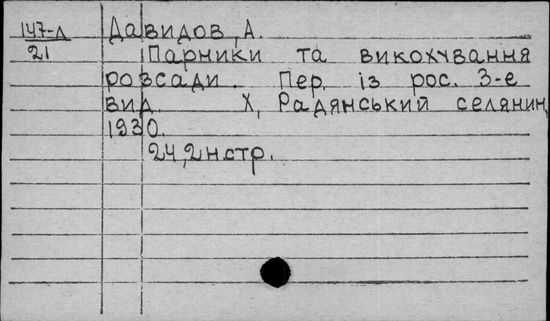 147-Д Давидов, А.
21 Парники та викохування
розсади. Пер. із рос. 3-е
вид. Х, Радянський селянин,
1930.
24, 2 н.стр.